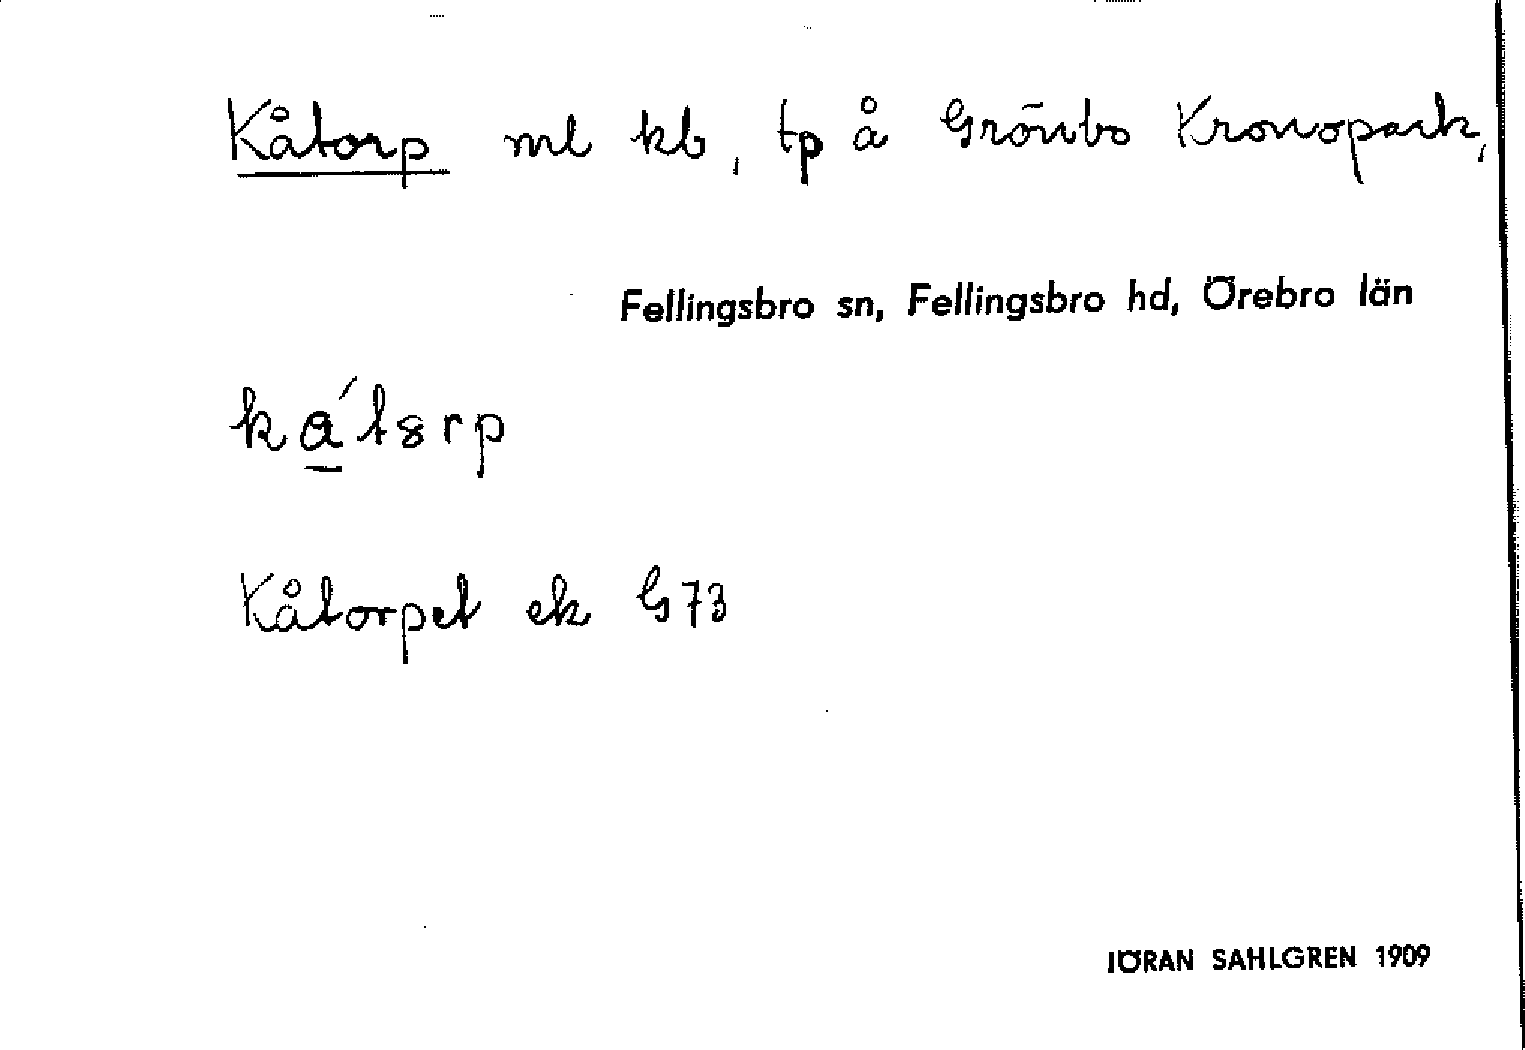 Kåtorp ml kb, tp å Grönbo Kronopark,
Fellingsbro sn, Fellingsbro hd, Örebro län
Kåtorpet ek G73
JÖRAN SAHLGREN 1909